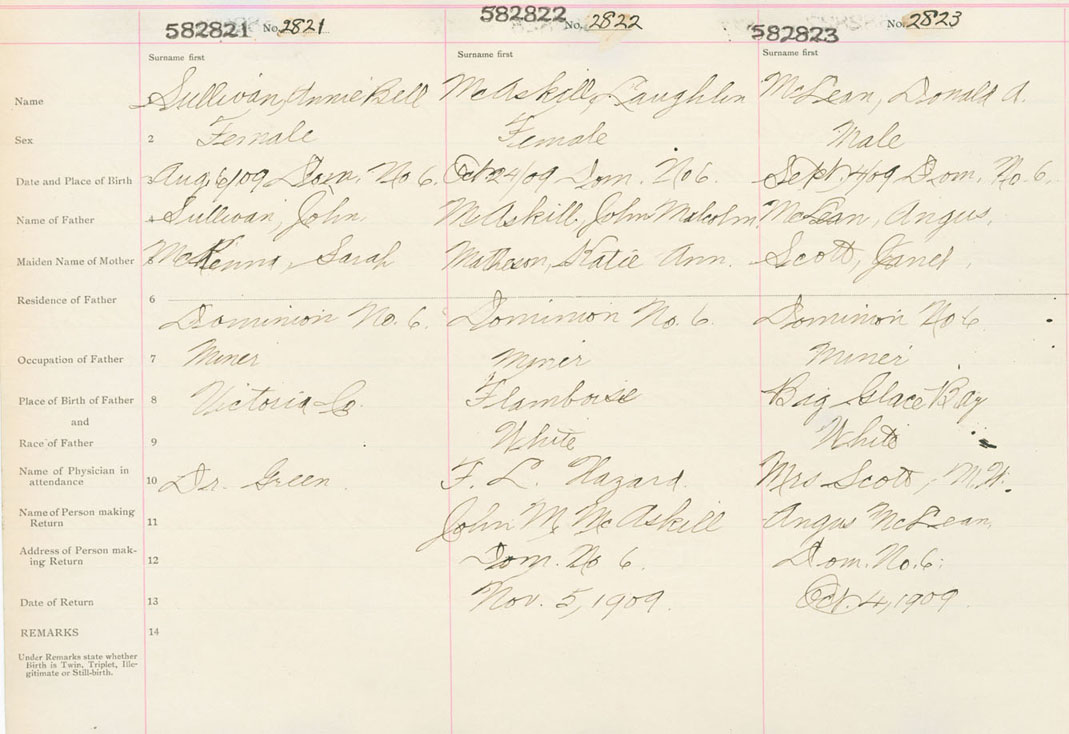 582821 No. 2821 582822 No. 2822 582823 No. 2823
Surname first Surname first Surname first
Name Sullivan, Annie Bell McAskill, Laughlin McLean, Donald A.
Sex 2 Female Female Male
Date and Place of Birth 3 Aug. 6/09 Dom. No 6. Oct 24/09 Dom. No 6. Sept. 4/09 Dom. No. 6.
Name of Father 4 Sullivan, John McAskill, John Malcolm McLean, Angus,
Maiden Name of Mother 5 McKenna, Sarah Matheson, Katie Ann. Scott, Janet
Residence of Father 6
Dominion No. 6. Dominion No 6. Dominion No 6.
Occupation of Father 7 Miner Miner Miner
Place of Birth of Father 8 Victoria Co. Flamboise Big Glace Bay
and
Race of Father 9 White White
Name of Physician in
attendance 10 Dr. Green F. L. Hazard. Mrs Scott, M.W.
Name of Person making
Return 11 John M. McAskill Angus McLean,
Address of Person mak-
ing Return 12 Dom. No 6. Dom. No. 6.
Date of Return 13 Nov. 5, 1909. Oct. 4, 1909
REMARKS 14
Under Remarks state whether
Birth is Twin, Triplet, Ille-
gitimate or Still-birth.